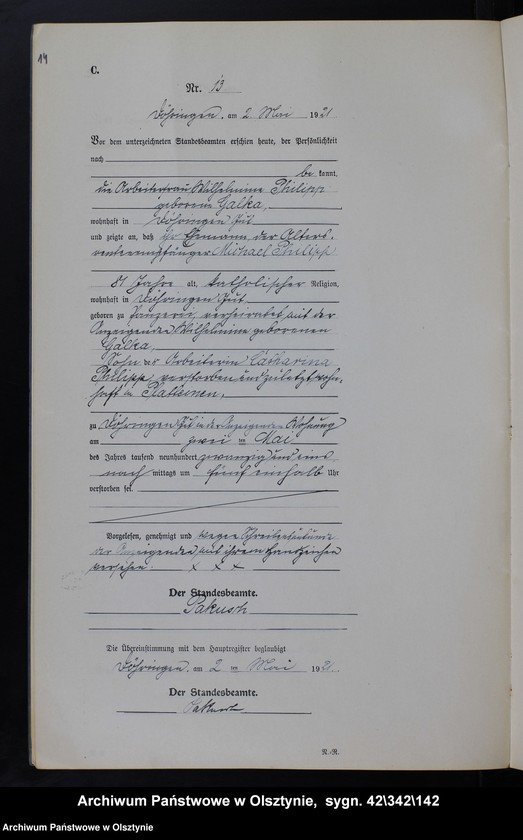 14
C.
Nr. 13
Döhringen, am 2 Mai 1921
Vor dem unterzeichneten Standesbeamten erschien heute, der Persönlichkeit
nach
be kannt,
die Arbeiterfrau Wilhelmine Philipp
geborene Galka,
wohnhaft in Döhringen Gut
und zeigte an, daß ihr Ehemann, der Alters-
rentenempfänger Michael Philipp
81 Jahre alt, katholischer Religion,
wohnhaft in Döhringen Gut,
geboren zu verheiratet mit der
Anzeigenden Wilhelmine geborenen
Galka,
Sohn der Arbeiterin Catharina
Philipp, verstorben und zuletzt wohn-
haft in Platteinen,
zu Döhringen Gut in der Anzeigenden Wohnung
am zwei ten Mai
des Jahres tausend neunhundert zwanzig und eins
nach mittags um fünf einhalb Uhr
verstorben sei.
Vorgelesen, genehmigt und wegen Schreibunkunde
der Anzeigenden mit ihrem Handzeichen
versehen. x x x
Der Standesbeamte.
Pakusch
Die Übereinstimmung mit dem Hauptregister beglaubigt
Döhringen, am 2 ten Mai 1921
Der Standesbeamte.
Pakusch
N.-R.
Archiwum Państwowe w Olsztynie, sygn. 42\342\142
Archiwum Państwowe w Olsztynie